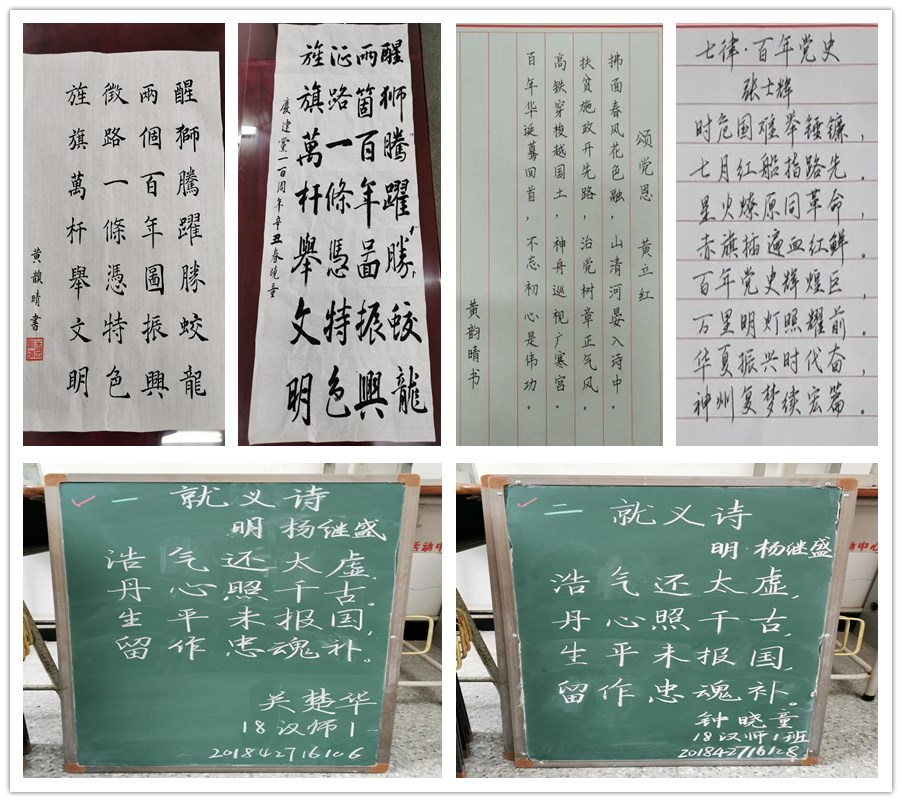 醒獅騰躍勝蛟龍
兩個百年圖振興
徵路一條憑特色
旌旗萬杆舉文明
黄韻晴書
醒獅騰躍勝蛟龍
兩箇百年啚振興
征路一條憑特色
旌旗萬杆舉文明
慶建黨一百周年辛丑春晓童
颂党恩 黄立红
拂面春风花色融,山清河晏入诗中。
扶贫施政开先路,治党树章正气风。
高铁穿梭越国土,神舟巡视广寒宫。
百年华诞蓦回首,不忘初心是伟功。
黄韵晴书
七律·百年党史
张士辉
时危国难举锤镰,
七月红船指路先。
星火燎原同革命,
赤旗插遍血红鲜。
百年党史辉煌巨,
万里明灯照耀前。
华夏振兴时代奋,
神州复梦续宏篇。
一 就义诗
明 杨继盛
浩气还太虚,
丹心照千古。
生平未报国,
留作忠魂补。
吴楚华
18汉师1
201842716106
活动中心
二 就义诗
明·杨继盛
浩气还太虚,
丹心照千古,
生平未报国,
留作忠魂补。
钟晓童
18汉师1班
201842716108
动中心